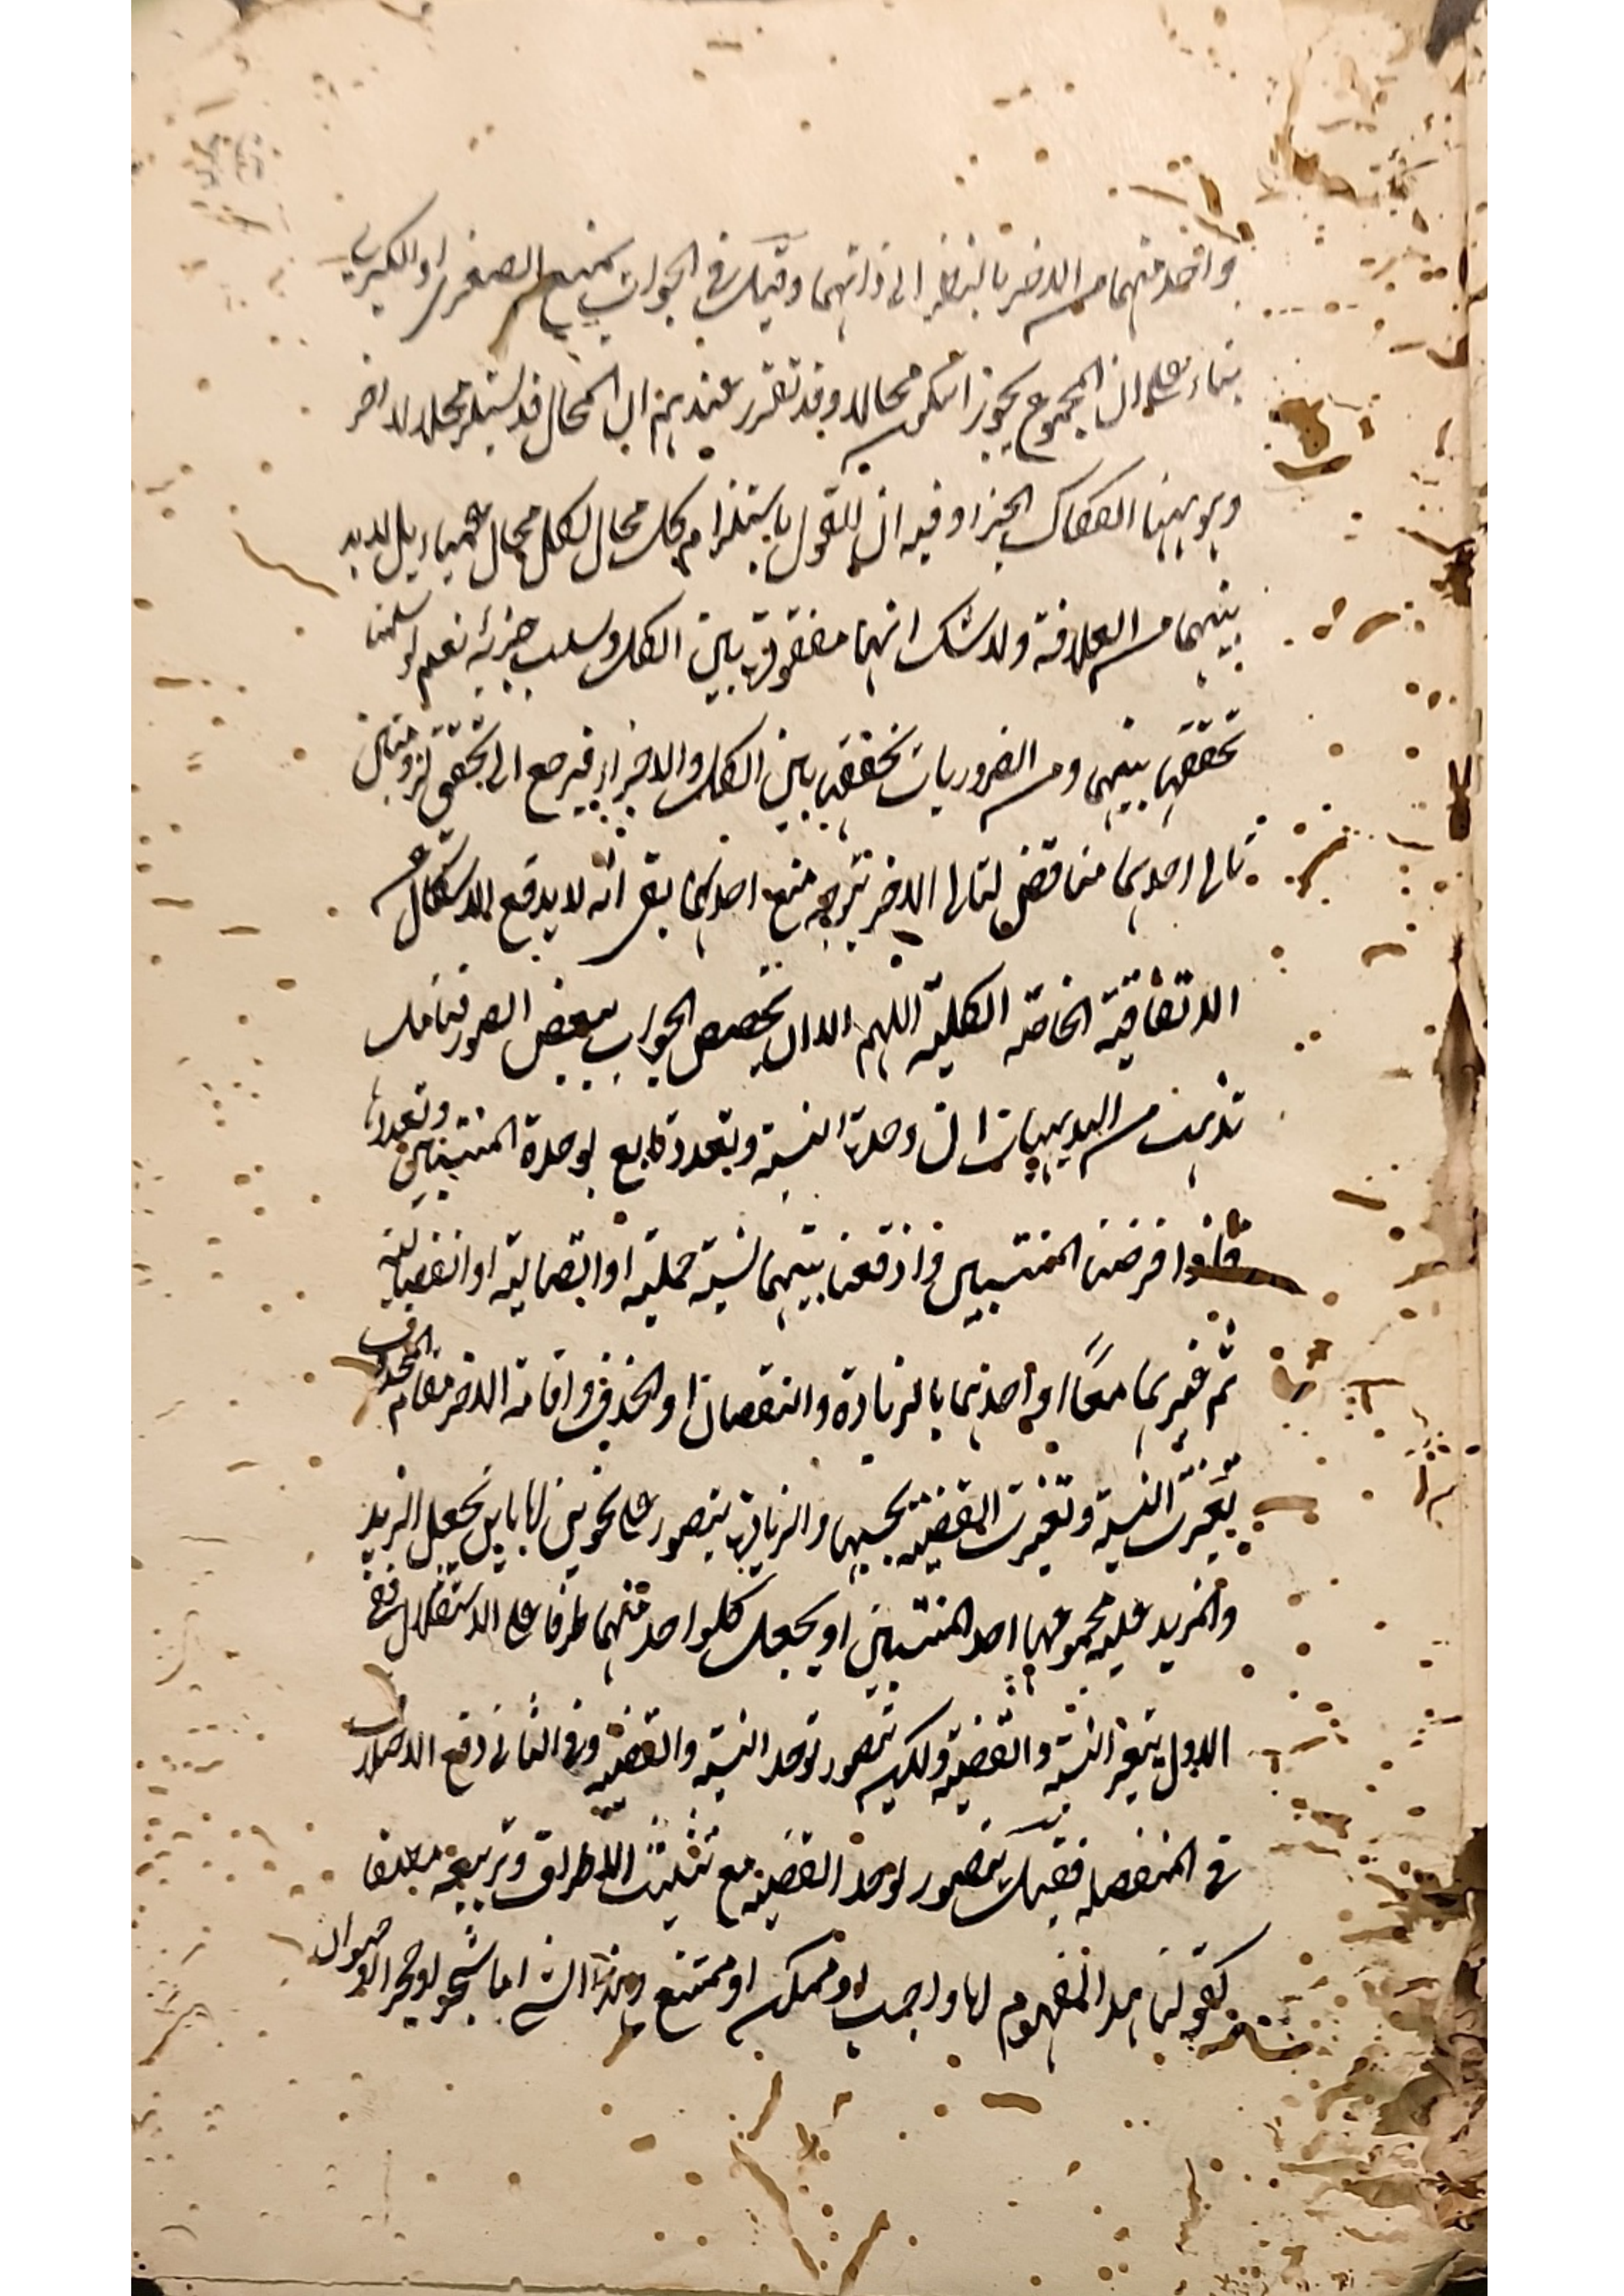 واحد منهما من الاخر بالنظر الى ذاتهما وقيل في الجواب بمنع الصغرى او الكبرى
بناء على ان المجموع يجوز ان يكون محالا وقد تقرر عندهم ان المحال قد يستلزم محالا اخر
وهو ههنا انفكاك الجزء وفيه ان القول باستلزام كل محال لكل محال بل لا بد
بينهما من العلاقة ولا شك انها مفقودة بين الكل وسلب جزئه نعم لو سلمنا
تحققها بينهما ومن الضروريات تحققها بين الكل والاجزاء فيرجع الى تحقق لزوميتين
تالى احدهما مناقض لتالى الاخر نتوجه منع احدهما بقى انه لا يدفع الاشكال عن
الاتفاقية الخاصة الكلية اللهم الا ان يخصص الجواب ببعض الصور فتامل
تذهيب من البديهيات ان وحدة النسبة وتعددة تابع لوحدة المنتسبين وتعددها
فاذا فرضنا المنتسبين واوقعنا بينهما نسبة حملية او اتصالية او انفصالية
ثم غيرهما معا او احدهما بالزيادة والنقصان او الحذف واقامة الاخر مقام المحذوف
تغيرت النسبة وتغيرت القضية بحسبها والزيادة يتصور على نحوين اما بان يجعل المزيد
والمزيد عليه مجموعهما احد المنتسبين او يجعل كلواحد منهما طرفا على الاستقلال ففي
الاول يتغير النسبة والقضية ولكن يتصور توحد النسبة والقضية وفي الثاني وقع الاختلاف
في المنفصلة فقيل يتصور توحد القضية مع تثليث الاطراف وتربيعه مطلقا
كقولنا هذا المفهوم اما واجب او ممكن او ممتنع وهذا الشئ اما شجر او حجر او حيوان